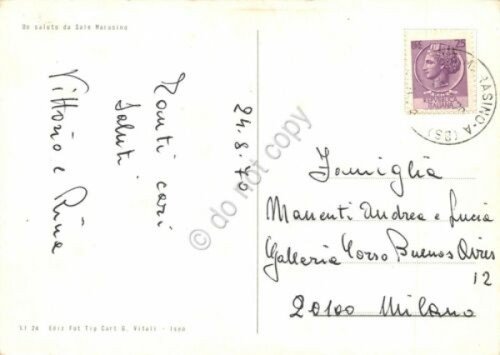 Un saluto da Sale Marasino
24.8.70
Tanti cari
saluti
Vittorio e Rina
25
MARASINO-A
(BS)
Famiglia
Manenti Andrea e Lucia
Galleria Corso Buenos Aires
12
20100 Milano
do not copy
Ediz Fot Tip Cart G. Vitali - Iseo